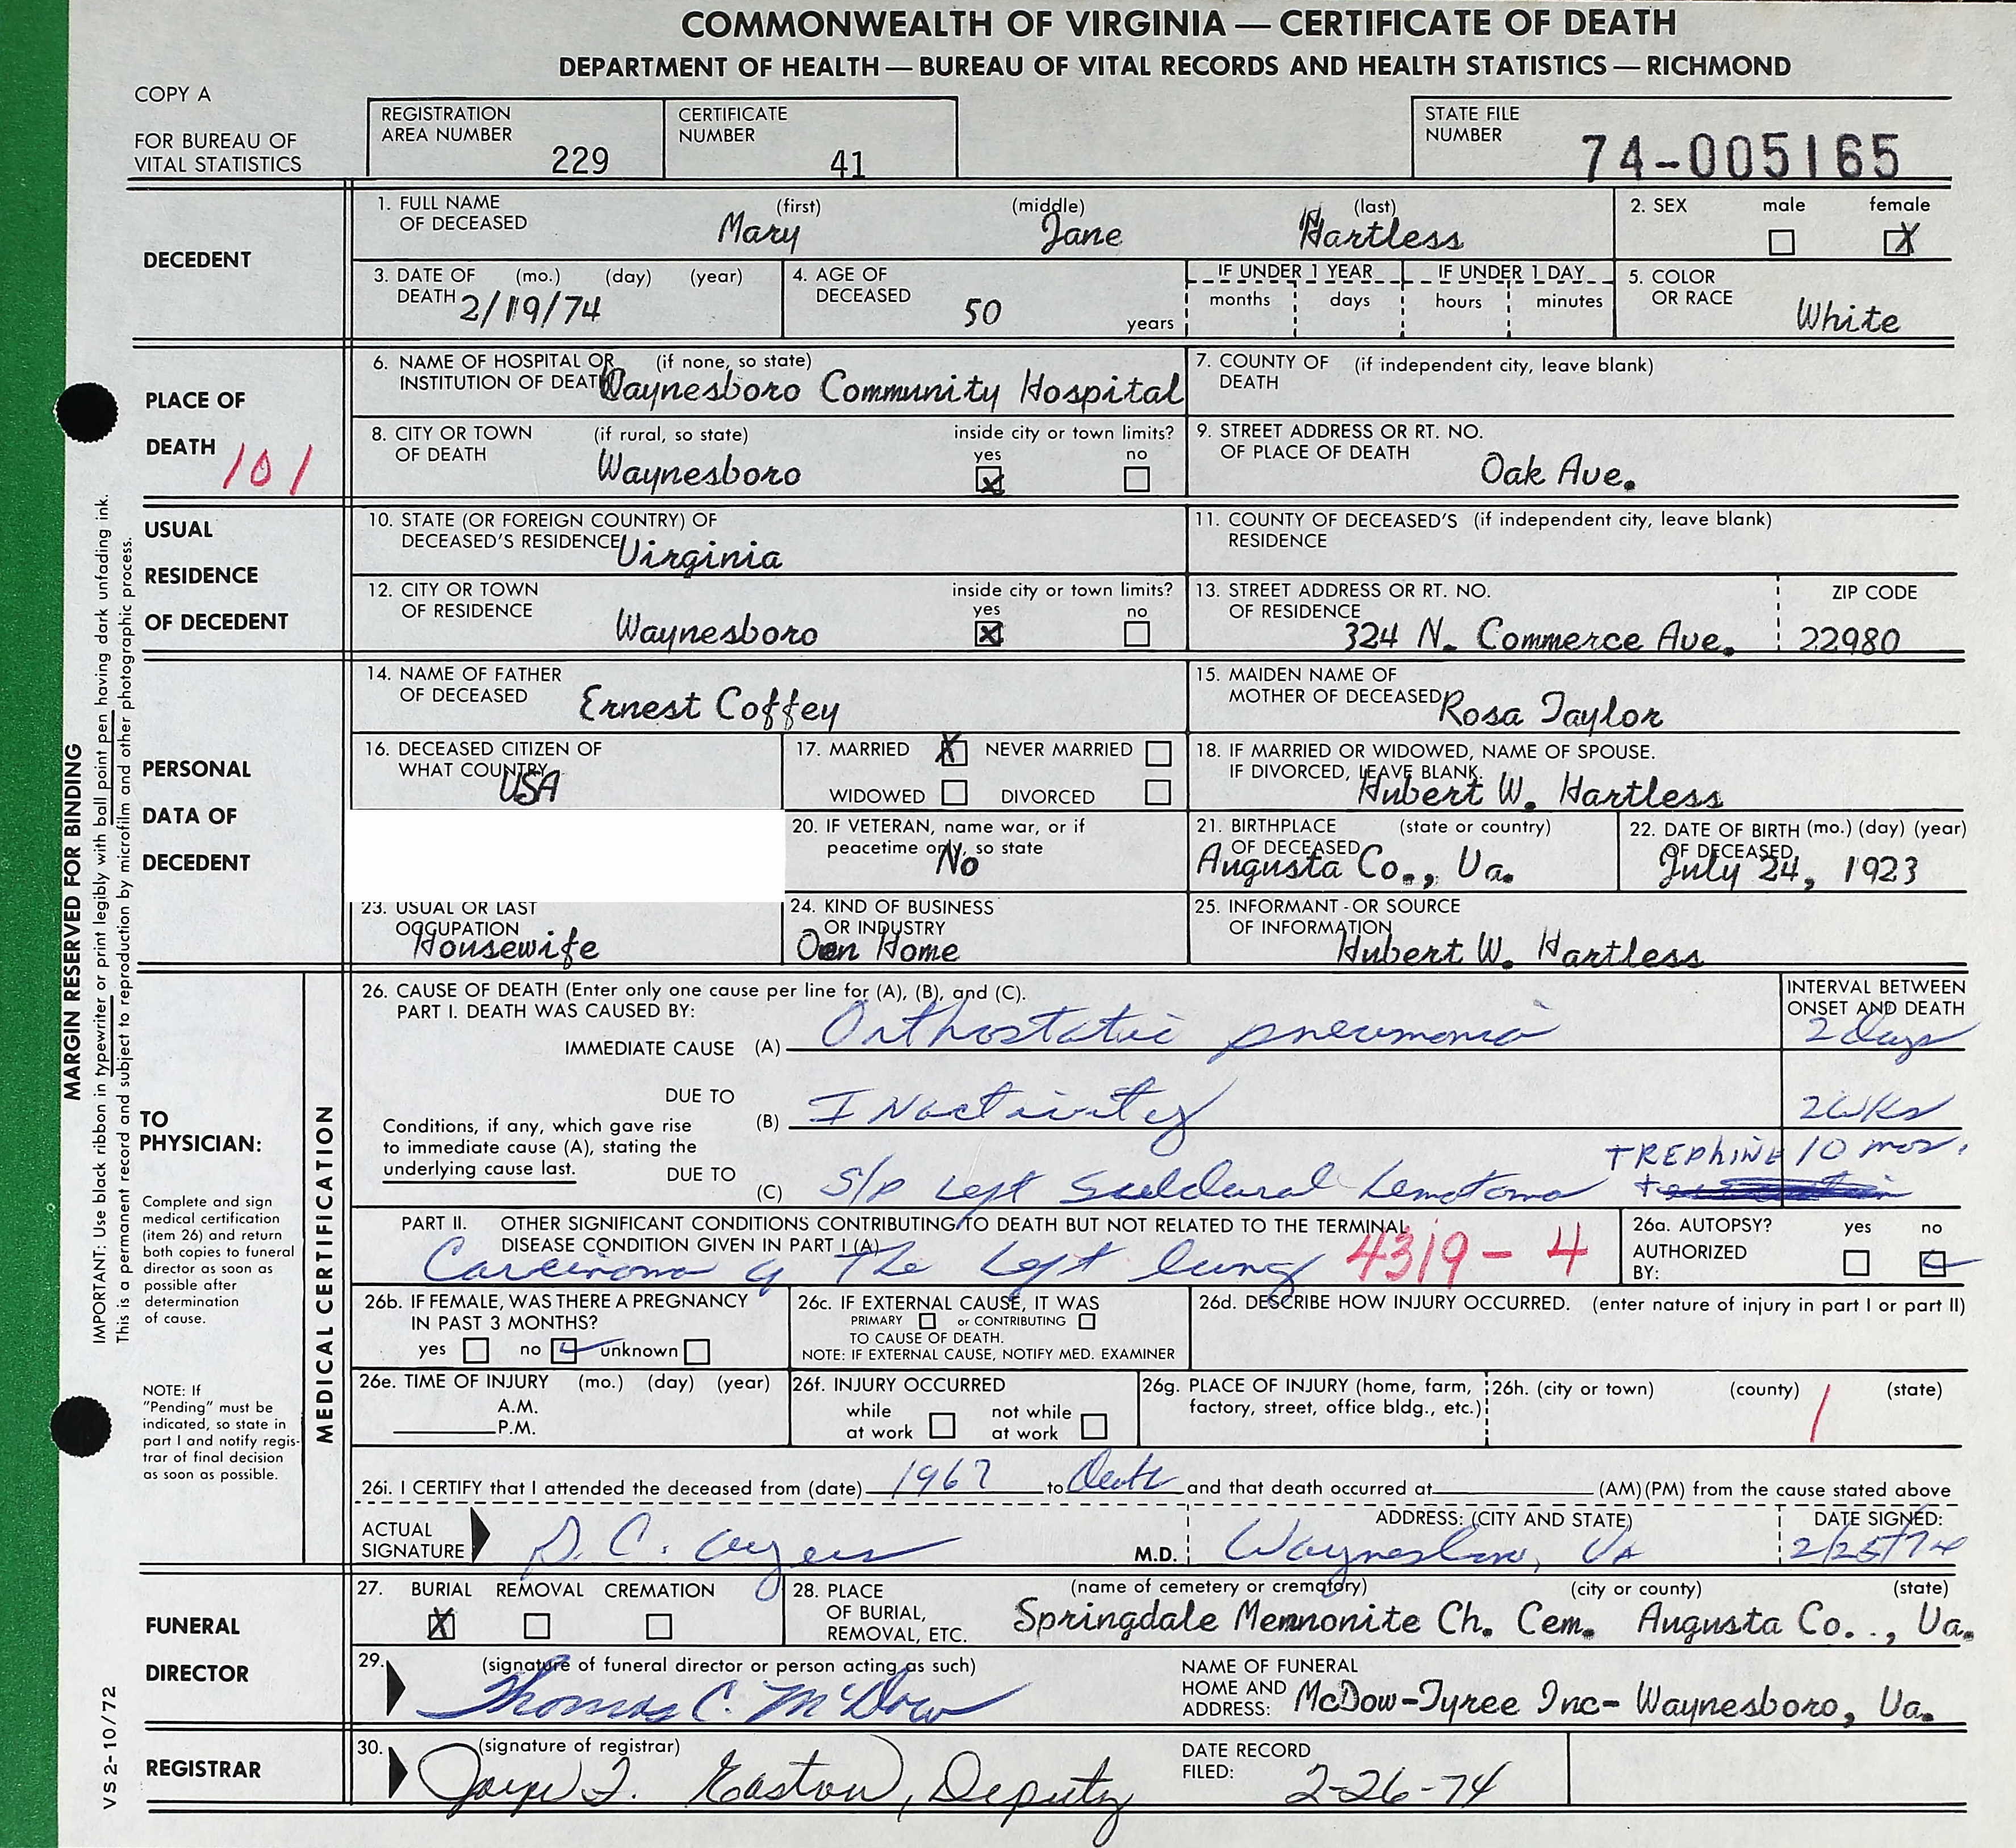 COMMONWEALTH OF VIRGINIA — CERTIFICATE OF DEATH
DEPARTMENT OF HEALTH — BUREAU OF VITAL RECORDS AND HEALTH STATISTICS — RICHMOND
COPY A
FOR BUREAU OF
VITAL STATISTICS
REGISTRATION
AREA NUMBER 229
CERTIFICATE
NUMBER 41
STATE FILE
NUMBER 74-005165
MARGIN RESERVED FOR BINDING
IMPORTANT: Use black ribbon in typewriter or print legibly with ball point pen having dark unfading ink.
This is a permanent record and subject to reproduction by microfilm and other photographic process.
VS 2-10/72
DECEDENT
1. FULL NAME (first) (middle) (last)
OF DECEASED Mary Jane Hartless
2. SEX male female X
3. DATE OF (mo.) (day) (year)
DEATH 2/19/74
4. AGE OF
DECEASED 50 years
IF UNDER 1 YEAR IF UNDER 1 DAY
months days hours minutes
5. COLOR
OR RACE White
PLACE OF
DEATH 101
6. NAME OF HOSPITAL OR (if none, so state)
INSTITUTION OF DEATH Waynesboro Community Hospital
7. COUNTY OF (if independent city, leave blank)
DEATH
8. CITY OR TOWN (if rural, so state) inside city or town limits?
OF DEATH Waynesboro yes X no
9. STREET ADDRESS OR RT. NO.
OF PLACE OF DEATH Oak Ave.
USUAL
RESIDENCE
OF DECEDENT
10. STATE (OR FOREIGN COUNTRY) OF
DECEASED'S RESIDENCE Virginia
11. COUNTY OF DECEASED'S (if independent city, leave blank)
RESIDENCE
12. CITY OR TOWN inside city or town limits?
OF RESIDENCE Waynesboro yes X no
13. STREET ADDRESS OR RT. NO. ZIP CODE
OF RESIDENCE 324 N. Commerce Ave. 22980
PERSONAL
DATA OF
DECEDENT
14. NAME OF FATHER
OF DECEASED Ernest Coffey
15. MAIDEN NAME OF
MOTHER OF DECEASED Rosa Taylor
16. DECEASED CITIZEN OF
WHAT COUNTRY USA
17. MARRIED X NEVER MARRIED
WIDOWED DIVORCED
18. IF MARRIED OR WIDOWED, NAME OF SPOUSE.
IF DIVORCED, LEAVE BLANK.
Hubert W. Hartless
20. IF VETERAN, name war, or if
peacetime only, so state
No
21. BIRTHPLACE (state or country)
OF DECEASED
Augusta Co., Va.
22. DATE OF BIRTH (mo.) (day) (year)
OF DECEASED
July 24, 1923
23. USUAL OR LAST
OCCUPATION
Housewife
24. KIND OF BUSINESS
OR INDUSTRY
Own Home
25. INFORMANT - OR SOURCE
OF INFORMATION
Hubert W. Hartless
TO
PHYSICIAN:
Complete and sign
medical certification
(item 26) and return
both copies to funeral
director as soon as
possible after
determination
of cause.
NOTE: If
"Pending" must be
indicated, so state in
part I and notify regis-
trar of final decision
as soon as possible.
MEDICAL CERTIFICATION
26. CAUSE OF DEATH (Enter only one cause per line for (A), (B), and (C).
PART I. DEATH WAS CAUSED BY:
INTERVAL BETWEEN
ONSET AND DEATH
IMMEDIATE CAUSE (A) Orthostatic pneumonia 2 days
DUE TO
(B) Inactivity 2 wks
Conditions, if any, which gave rise
to immediate cause (A), stating the
underlying cause last.
DUE TO
(C) S/P Left Subdural hematoma TREPHINE 10 mos.
PART II. OTHER SIGNIFICANT CONDITIONS CONTRIBUTING TO DEATH BUT NOT RELATED TO THE TERMINAL
DISEASE CONDITION GIVEN IN PART I (A)
Carcinoma of The Left lung 4319-4
26a. AUTOPSY? yes no
AUTHORIZED
BY:
26b. IF FEMALE, WAS THERE A PREGNANCY
IN PAST 3 MONTHS?
yes no unknown
26c. IF EXTERNAL CAUSE, IT WAS
PRIMARY or CONTRIBUTING
TO CAUSE OF DEATH.
NOTE: IF EXTERNAL CAUSE, NOTIFY MED. EXAMINER
26d. DESCRIBE HOW INJURY OCCURRED. (enter nature of injury in part I or part II)
26e. TIME OF INJURY (mo.) (day) (year)
A.M.
P.M.
26f. INJURY OCCURRED
while at work not while at work
26g. PLACE OF INJURY (home, farm,
factory, street, office bldg., etc.)
26h. (city or town) (county) (state)
1
26i. I CERTIFY that I attended the deceased from (date) 1967 to Death and that death occurred at (AM)(PM) from the cause stated above
ACTUAL
SIGNATURE M.D.
ADDRESS: (CITY AND STATE)
Waynesboro, VA
DATE SIGNED:
2/25/74
FUNERAL
DIRECTOR
27. BURIAL REMOVAL CREMATION
X
28. PLACE
OF BURIAL,
REMOVAL, ETC.
(name of cemetery or crematory) (city or county) (state)
Springdale Mennonite Ch. Cem. Augusta Co.., Va.
29. (signature of funeral director or person acting as such)
Thomas C. McDow
NAME OF FUNERAL
HOME AND
ADDRESS: McDow-Tyree Inc- Waynesboro, Va.
REGISTRAR
30. (signature of registrar)
Easton, Deputy
DATE RECORD
FILED: 2-26-74